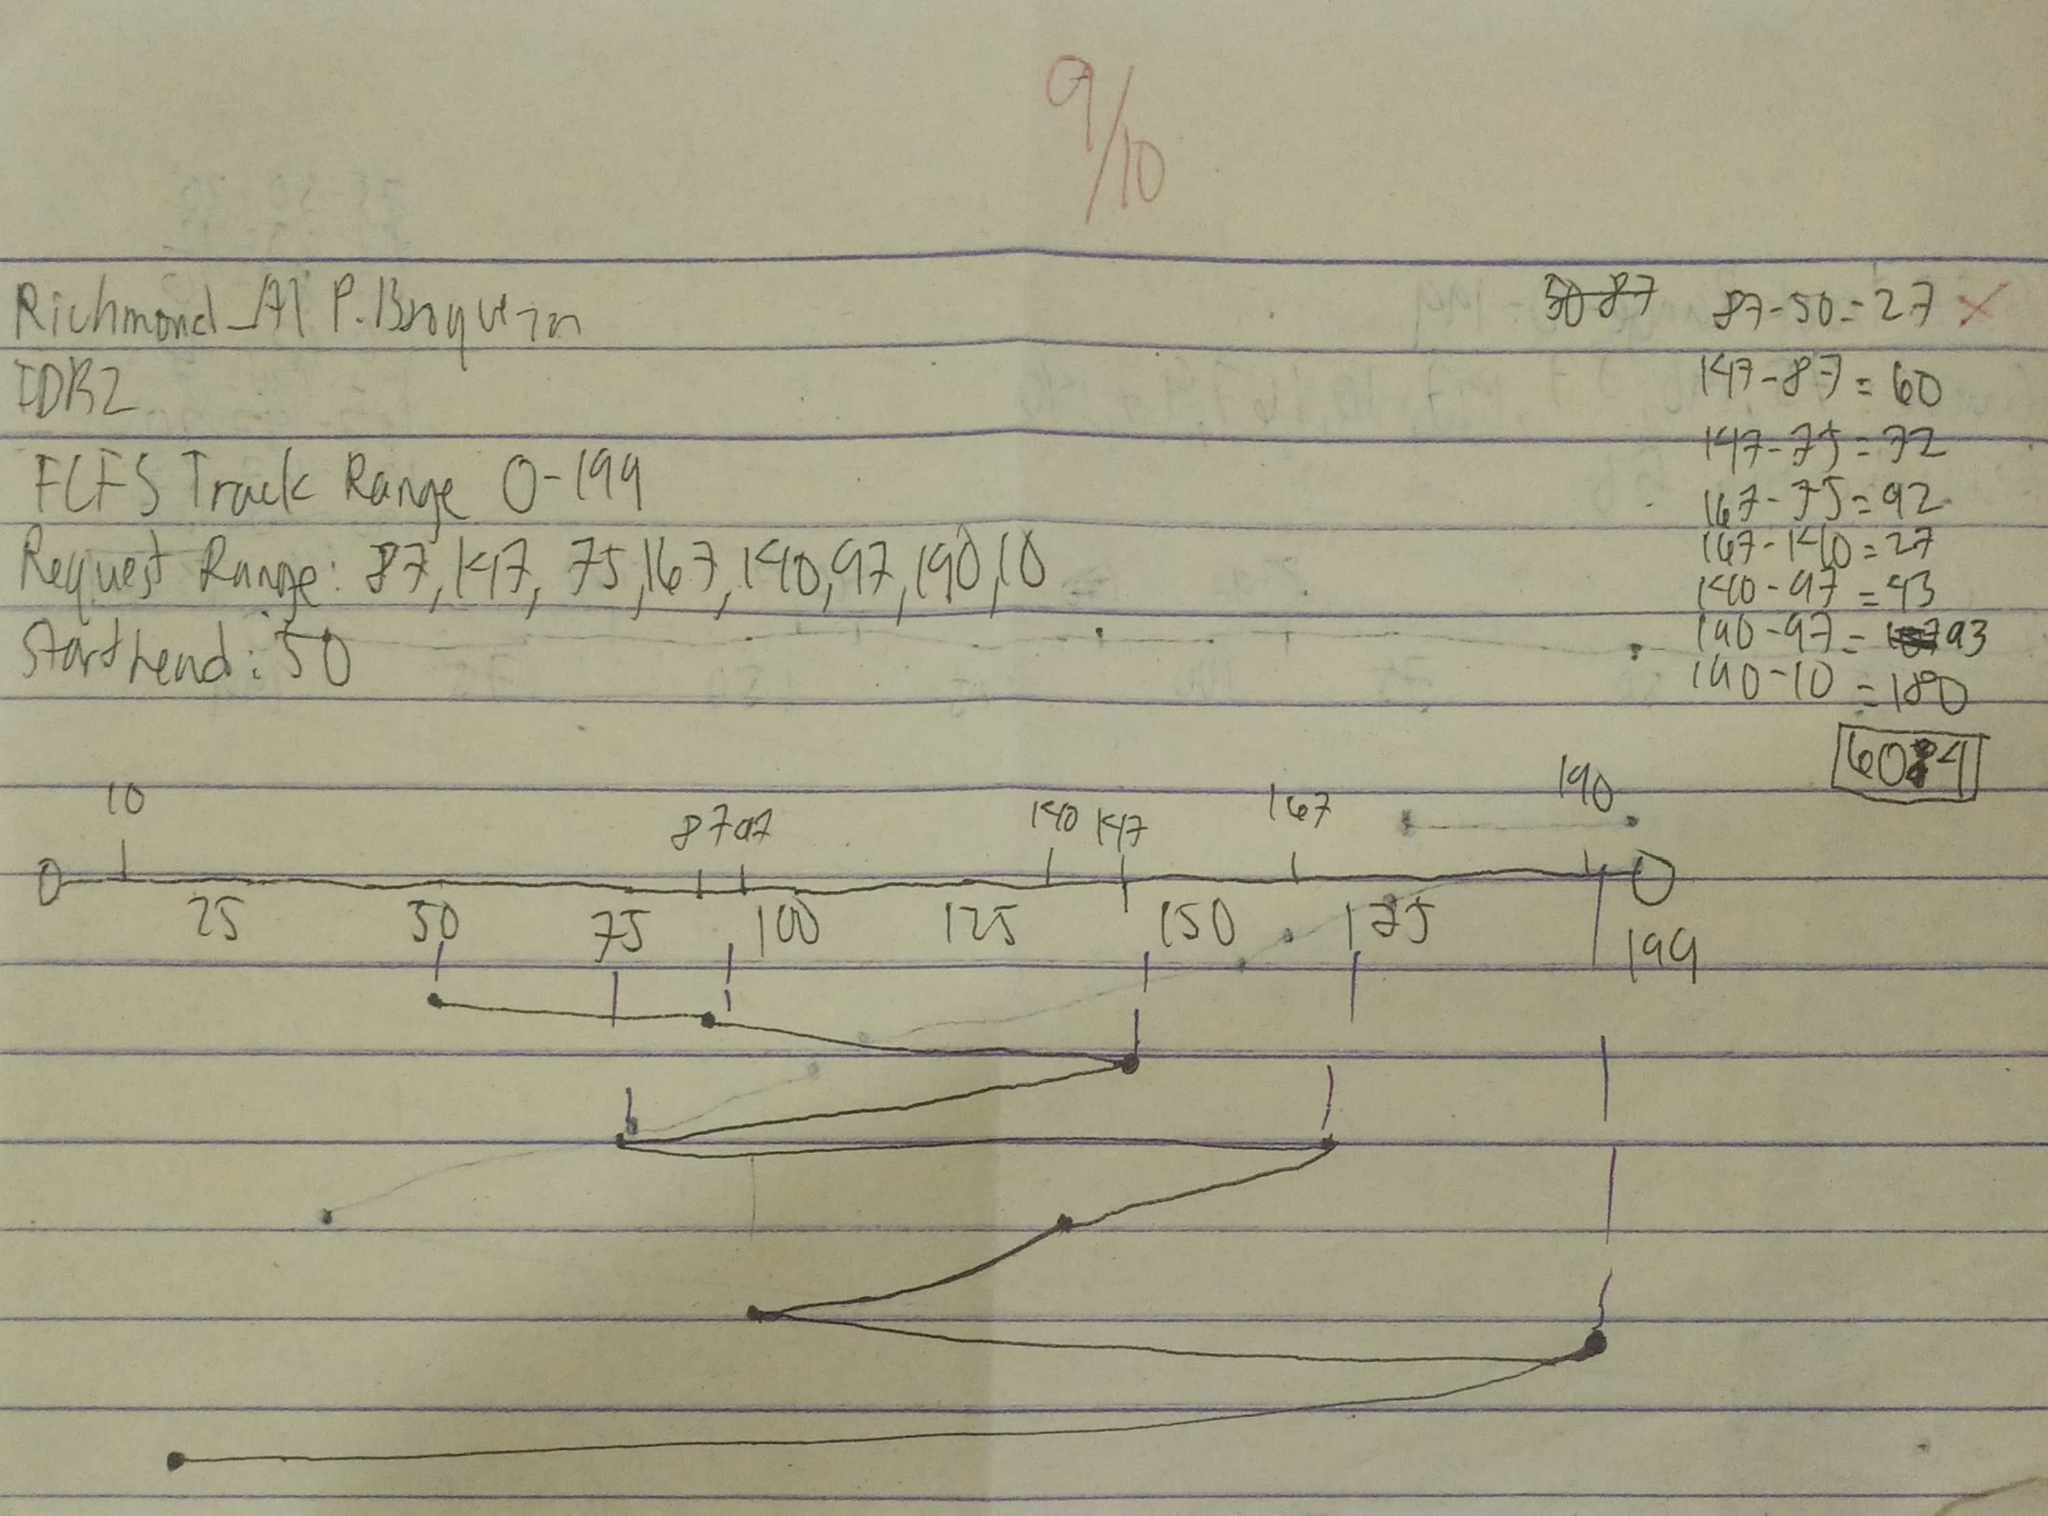 9/10
Richmond Al P.
IDB2
FCFS Track Range 0-199
Request Range: 87, 147, 75, 167, 140, 97, 190, 10
Start head: 50
50-87 87-50=27 X
147-87=60
147-75=72
167-75=92
167-140=27
140-97=43
190-97=93
190-10=180
10 87 97 140 147 167 190
0 0
25 50 75 100 125 150 175 199